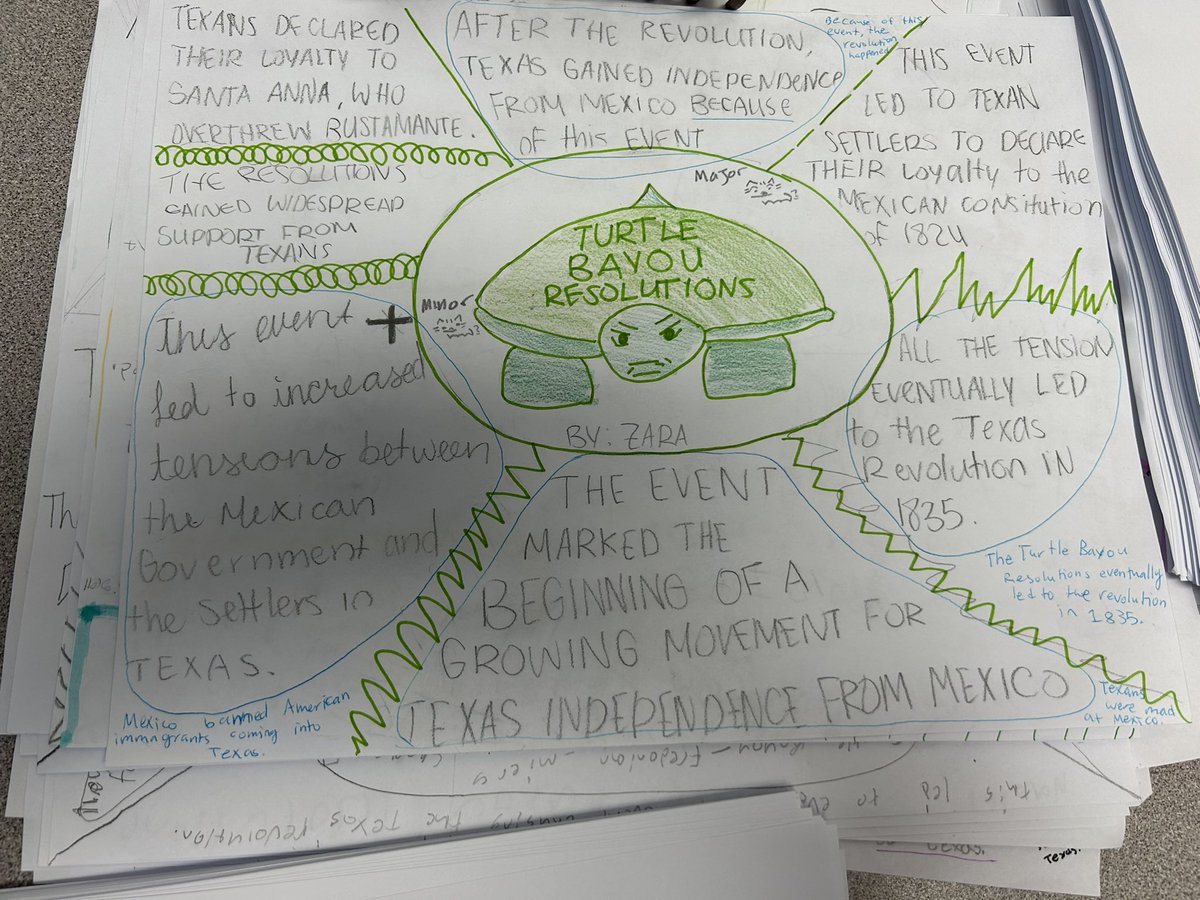 TEXANS DECLARED
THEIR LOYALTY TO
SANTA ANNA, WHO
OVERTHREW BUSTAMANTE.
THE RESOLUTIONS
GAINED WIDESPREAD
SUPPORT FROM
TEXANS
AFTER THE REVOLUTION,
TEXAS GAINED INDEPENDENCE
FROM MEXICO BECAUSE
OF this EVENT
Because of this
event, the
revolution
happened
THIS EVENT
LED TO TEXAN
SETTLERS TO DECLARE
THEIR LOyaLty to the
MEXICAN CONSItUTION
of 1824
Major
TURTLE
BAYOU
RESOLUTIONS
Minor
BY: ZARA
This event
led to increased
tensions between
the Mexican
Government and
the Settlers in
TEXAS.
Mexico banned American
immagrants coming into
Texas.
ALL THE TENSION
EVENTUALLY LED
to the Texas
Revolution IN
1835.
The Turtle Bayou
Resolutions eventually
led to the revolution
in 1835.
THE EVENT
MARKED THE
BEGINNING OF A
GROWING MOVEMENT FOR
TEXAS INDEPENDENCE FROM MEXICO
Texans
were mad
at Mexico.
Th
this led to
the Texas revolution.
Texas.